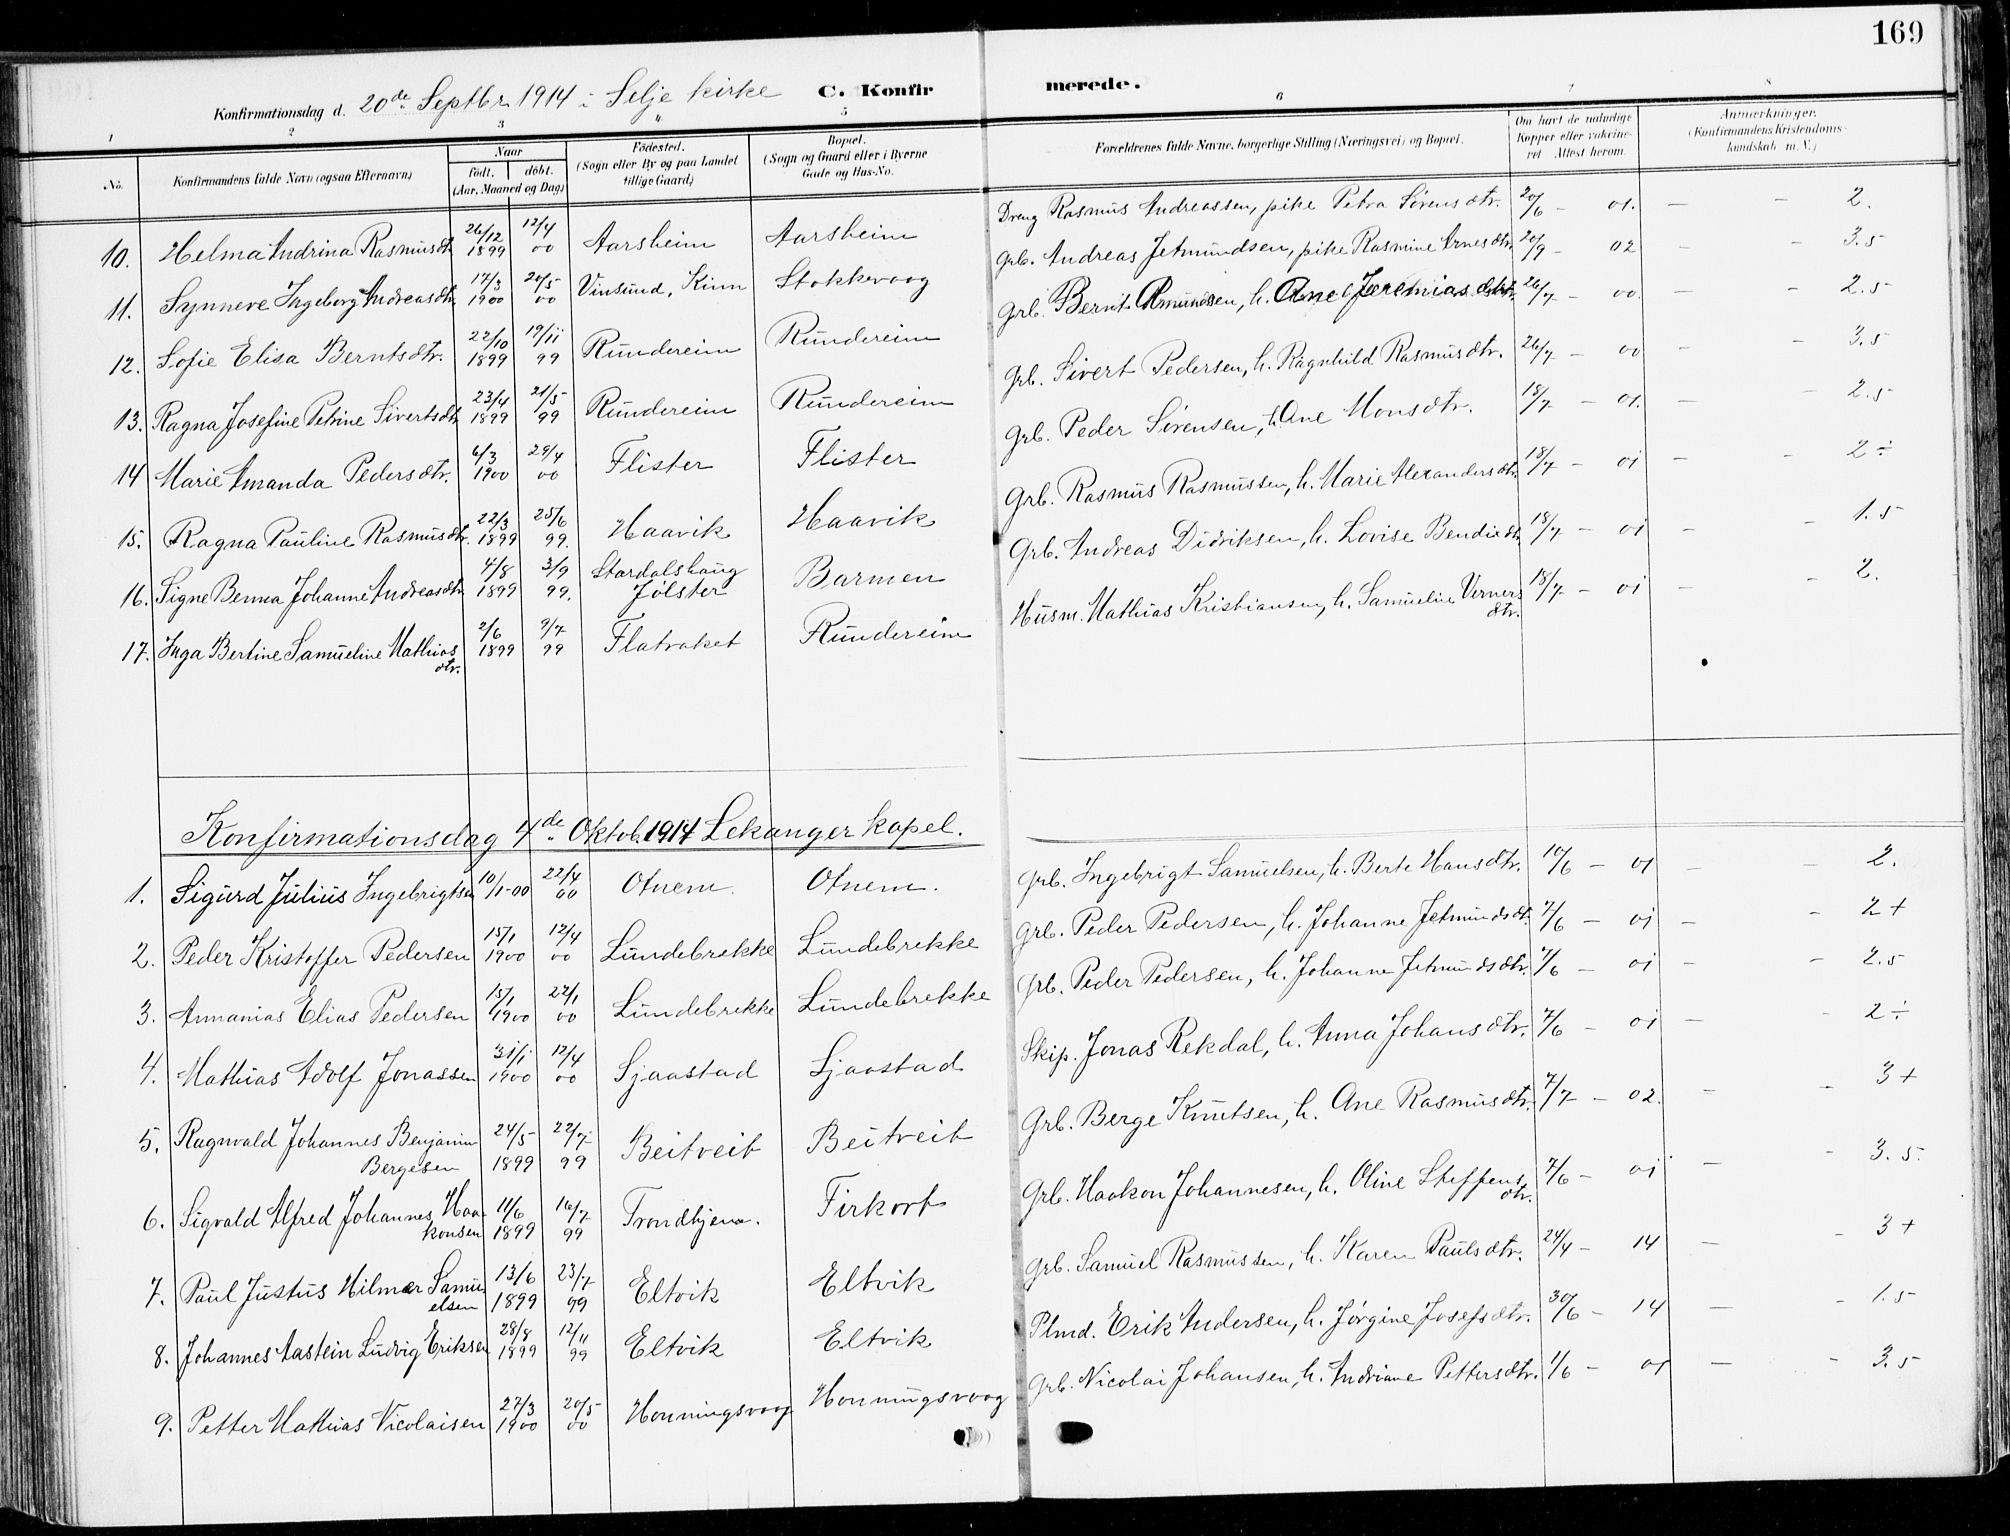 169
Konfirmationsdag d. 20de Septbr 1914 i Selje kirke C. Konfirmerede.
1 2 3 4 5 6 7 8
No. Konfirmandens fulde Navn (ogsaa Efternavn) Naar født. døbt. (Aar, Maaned og Dag) Fødested. (Sogn eller By og paa Landet tillige Gaard) Bopæl. (Sogn og Gaard eller i Byerne Gade og Hus-No. Forældrenes fulde Navne, borgerlige Stilling (Næringsvei) og Bopæl. Om havt de naturlige Kopper eller vakcineret. Attest herom. Anmærkninger. (Konfirmandens Kristendomskundskab m. V.)
10. Helma Andrina Rasmusdtr 26/12 1899 12/4 00 Aarsheim Aarsheim Dreng Rasmus Andreassen, pike Petra Sørensdtr. 20/6 - 01. - - 2.
11. Synneve Ingeborg Andreasdtr 17/3 1900 20/5 00 Vinsund, Kinn Stokkevaag Grb. Andreas Jetmundsen, pike Rasmine Arnesdtr. 20/9 - 02 - - 3.5
12. Sofie Elisa Berntsdtr. 22/10 1899 19/11 99 Rundereim Rundereim Grb. Bernt Amundsen, h. Ane Jeremiasdtr. 26/7 - 00. - - 2.5
13. Ragna Josefine Petrine Sivertsdtr 23/4 1899 21/5 99 Rundereim Rundereim Grb. Sivert Pedersen, h. Ragnhild Rasmusdtr. 26/7 - 00 - - 3.5
14 Marie Amanda Pedersdtr. 6/3 1900 29/4 00 Flister Flister Grb. Peder Sørensen, h. Ane Monsdtr. 18/7 - 01. - - 2.5
15. Ragna Pauline Rasmusdtr. 22/3 1899 25/6 99. Haavik Haavik Grb. Rasmus Rasmussen, h. Marie Alexandersdtr. 18/7 - 01 - - 2÷
16. Signe Benna Johanne Andreasdtr 4/8 1899 3/9 99. Stardalshaug Jølster Barmen Grb. Andreas Didriksen, h. Lovise Bendixdtr. 18/7 - 01 - - 1.5
17. Inga Bertine Samueline Mathiasdtr. 2/6 1899 9/7 99 Flatraket Rundereim Husm. Mathias Kristiansen, h. Samueline Vernersdtr. 18/7 - 01 - - 2.
Konfirmationsdag 4de Oktob. 1914 Lekanger kapel.
1. Sigurd Julius Ingebrigtsen 10/1-00 22/4 00 Otnem. Otnem. Grb. Ingebrigt Samuelsen, h. Berte Hansdtr. 10/6 - 01 - - 2.
2. Peder Kristoffer Pedersen 15/1 1900 12/4 00 Lundebrekke Lundebrekke Grb. Peder Pedersen, h. Johanne Jetmundsdt. 7/6 - 01 - - 2+
3. Annanias Elias Pedersen 15/1 1900 22/1 00 Lundebrekke Lundebrekke Grb. Peder Pedersen, h. Johanne Jetmundsdtr. 7/6 - 01 - - 2.5
4. Mathias Adolf Jonassen 31/1 1900 12/4 00 Sjaastad Sjaastad Skip. Jonas Rekdal, h. Anna Johansdtr. 7/6 - 01 - - 2÷
5. Ragnvald Johannes Benjamin Bergesen 24/5 1899 22/7 99 Beitveit Beitveit Grb. Berge Knutsen, h. Ane Rasmusdtr. 7/7 - 02. - - 3+
6. Sigvald Alfred Johannes Haakonsen 11/6 1899 16/7 99 Trondhjem. Firkort Grb. Haakon Johannesen, h. Oline Steffensdtr. 7/6 - 01 - - 3.5.
7. Paul Justus Hilmar Samuelsen 13/6 1899 23/7 99 Eltvik Eltvik Grb. Samuel Rasmussen, h. Karen Paulsdtr. 24/4 - 14 - - 3+
8. Johannes Aastein Ludvig Eriksen 28/8 1899 12/11 99 Eltvik Eltvik Plmd. Erik Andersen, h. Jørgine Josefsdtr. 30/6 - 14 - - 1.5
9. Petter Mathias Nicolaisen 27/3 1900 20/5 00 Honningsvaag Honningsvaag Grb. Nicolai Johansen, h. Andriane Pettersdtr. 1/6 - 01 - - 3.5